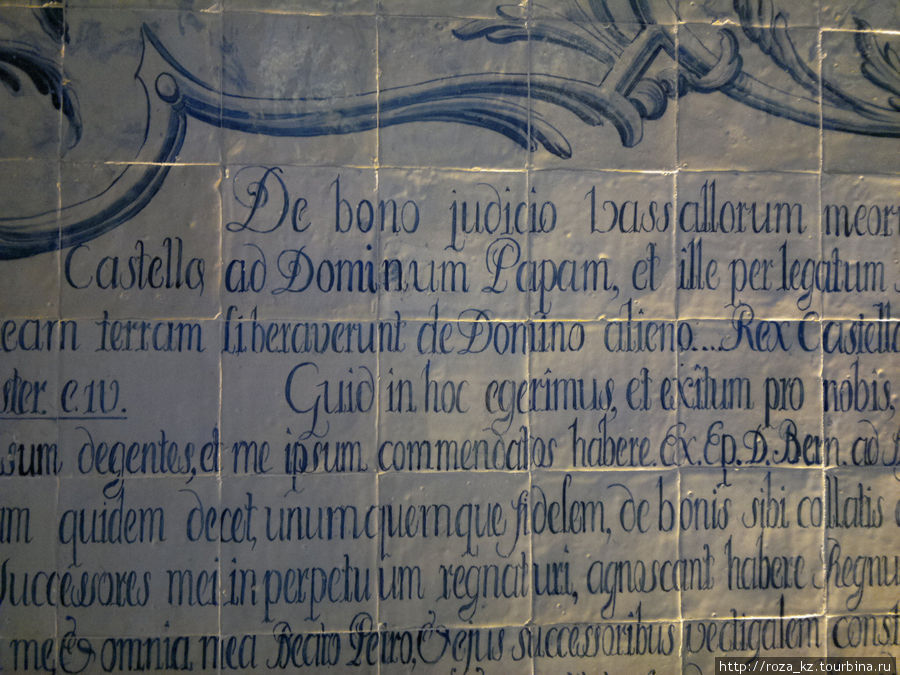 De bono judicio Vassallorum meor
Castella, ad Dominum Papam, et ille per legatum
eam terram liberaverunt de Domino alieno... Rex Castella
ster. c. 10. Quid in hoc egerimus, et exitum pro nobis,
ssum degentes, et me ipsum commendatos habere. Ex. Ep. D. Bern. ad
um quidem decet, unumquemque fidelem, de bonis sibi collatis
Successores mei in perpetuum regnaturi, agnoscant habere Regnu
me, & omnia mea Beato Petro, & ejus successoribus vectigalem const
http://roza_kz.tourbina.ru